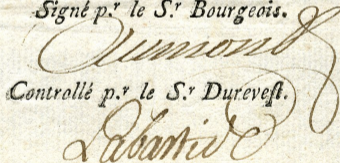 Signé p.r le S.r Bourgeois.
Dumond
Controllé p.r le S.r Durevest.
Labastide